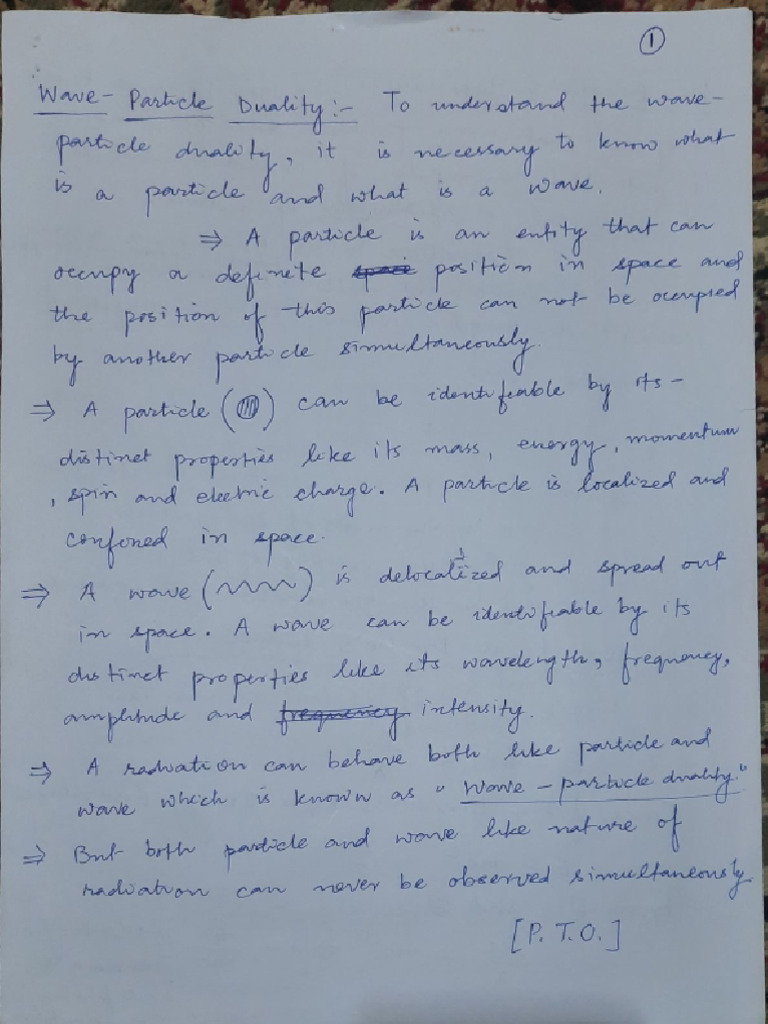 1
Wave - Particle Duality :- To understand the wave -
particle duality, it is necessary to know what
is a particle and what is a wave.
⇒ A particle is an entity that can
occupy a definite space position in space and
the position of this particle can not be occupied
by another particle simultaneously.
⇒ A particle ( ) can be identifiable by its -
distinct properties like its mass, energy, momentum
, spin and electric charge. A particle is localized and
confined in space.
⇒ A wave ( ) is delocalized and spread out
in space. A wave can be identifiable by its
distinct properties like its wavelength, frequency,
amplitude and frequency intensity.
⇒ A radiation can behave both like particle and
wave which is known as "Wave - particle duality."
⇒ But both particle and wave like nature of
radiation can never be observed simultaneously.
[P. T. O.]